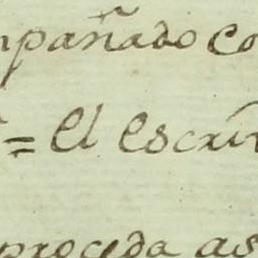 mpañado co
= El Escri
proceda as